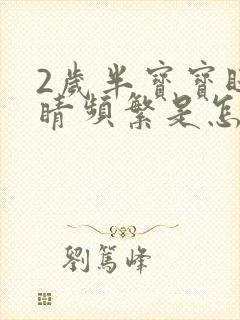 2歲半寶寶
睛頻繁是怎
劉篤峰